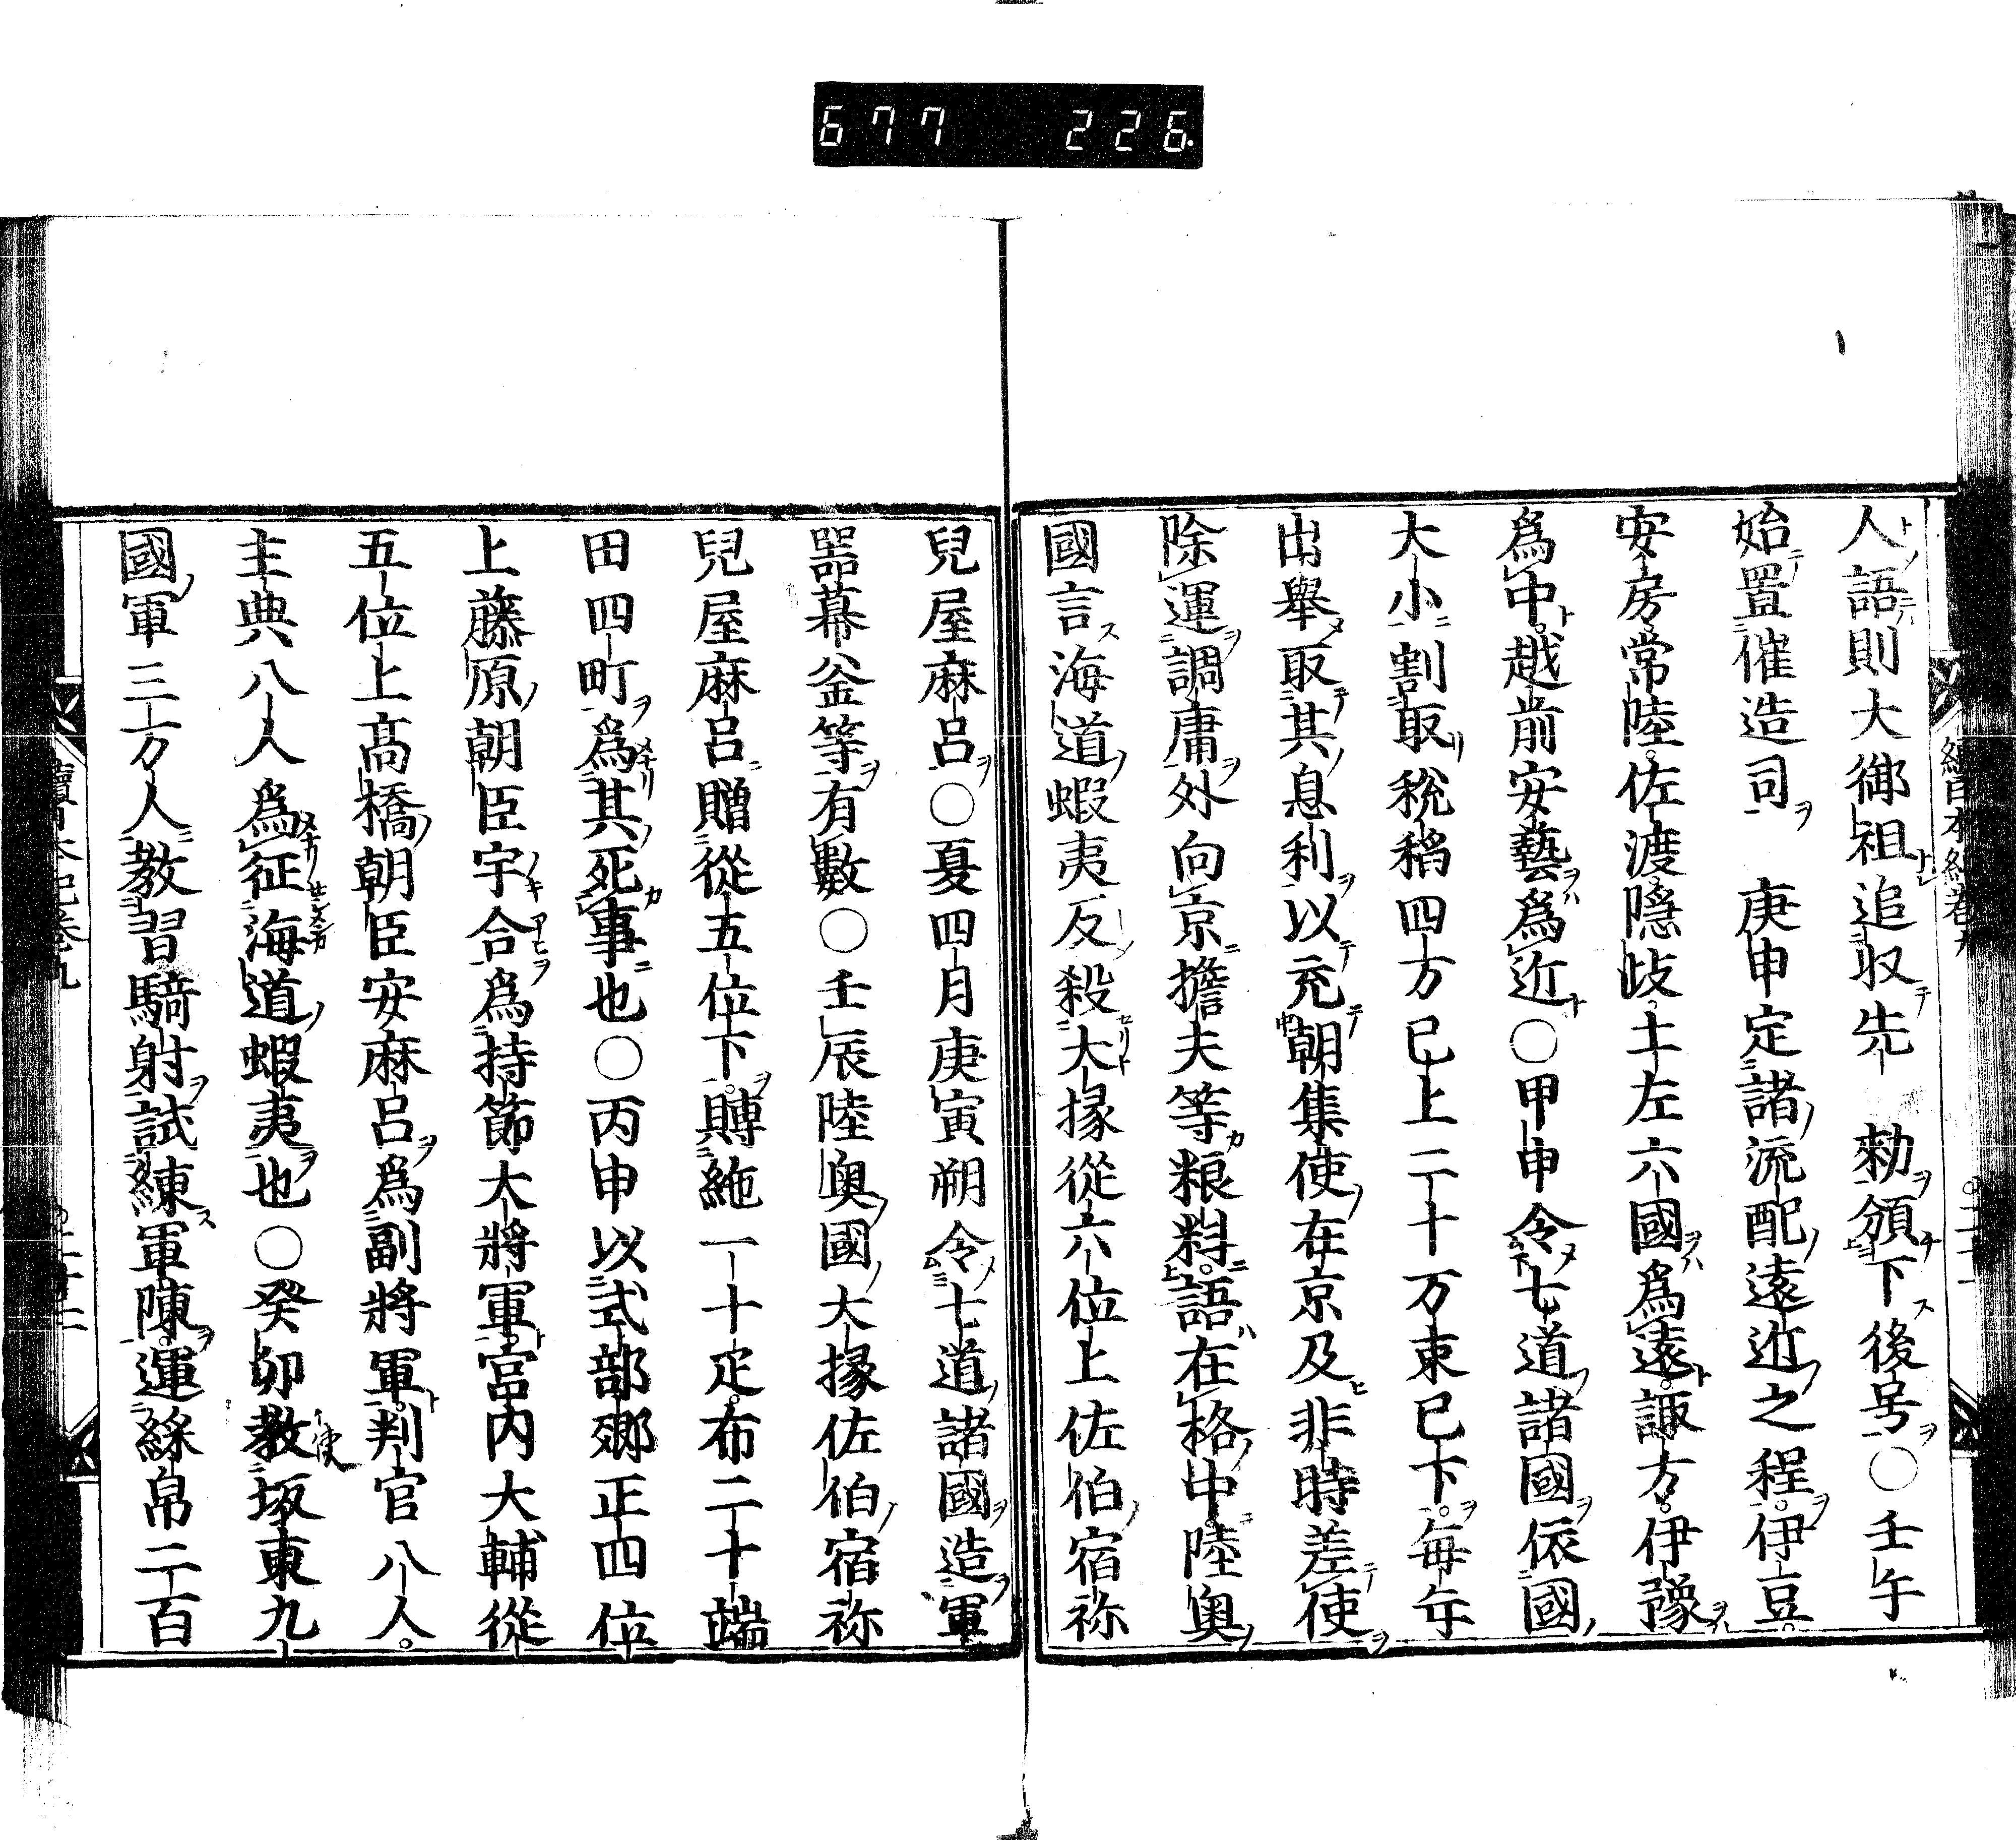 677 226
人語則大御祖追収先 勅頒下後号○壬午
始置催造司 庚申定諸流配遠近之程伊豆
安房常陸佐渡隠岐土左六國爲遠諏方伊豫
爲中越前安藝爲近○甲申令七道諸國依國
大小割取税稻四万已上二十万束已下毎年
出擧取其息利以充朝集使在京及非時差使
除運調庸外向京擔夫等粮料語在格中陸奥
國言海道蝦夷反殺大掾從六位上佐伯宿祢
兒屋麻呂○夏四月庚寅朔令七道諸國造軍
器幕釜等有數○壬辰陸奥國大掾佐伯宿祢
兒屋麻呂贈從五位下賻絁一十疋布二十端
田四町爲其死事也○丙申以式部卿正四位
上藤原朝臣宇合爲持節大將軍宮内大輔從
五位上髙橋朝臣安麻呂爲副將軍判官八人
主典八人爲征海道蝦夷也○癸卯教坂東九
國軍三万人教習騎射試練軍陳運綵帛二百